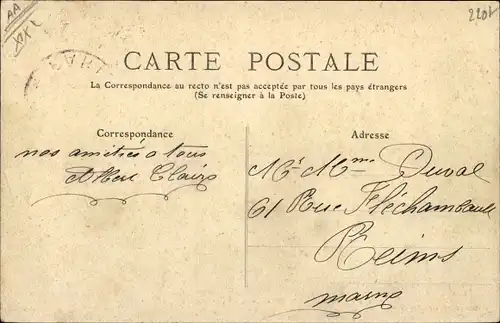 AA
220f
CARTE POSTALE
La Correspondance au recto n'est pas acceptée par tous les pays étrangers
(Se renseigner à la Poste)
Correspondance
nos amitiés a tous
Albert
Adresse
Mr Mme Duval
61 Rue Fléchambault
Reims
Marne